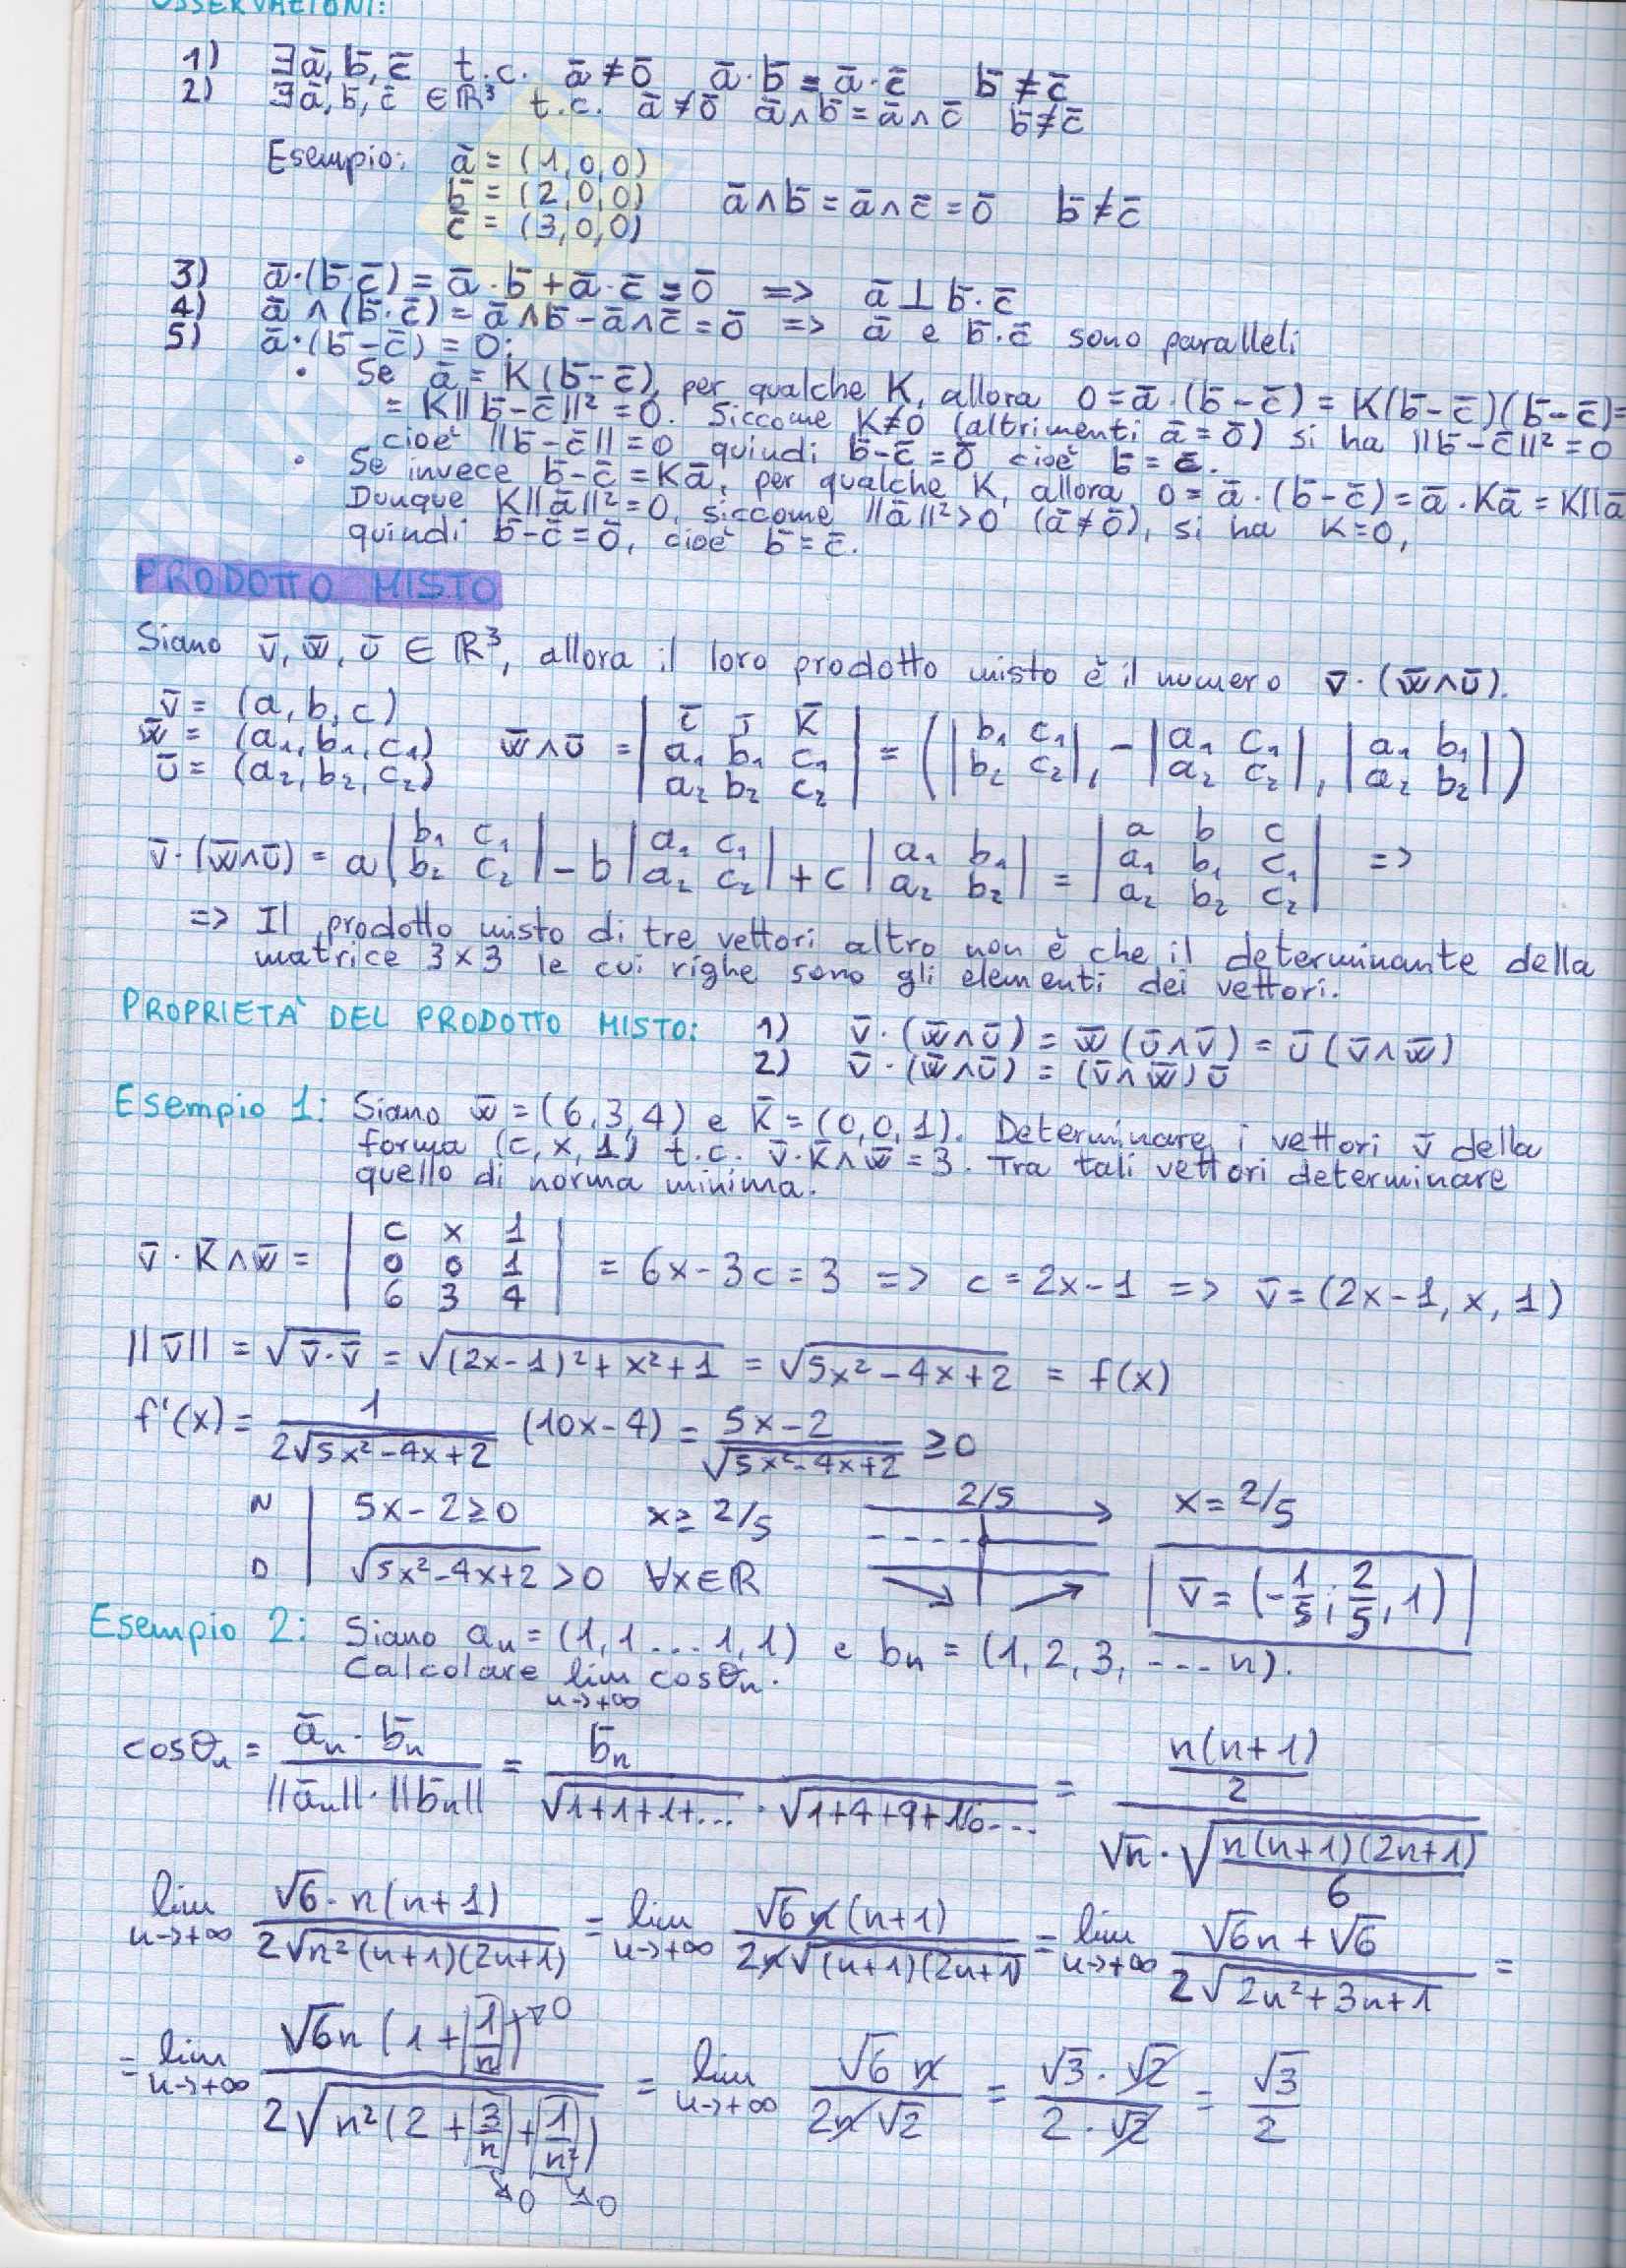 OSSERVAZIONI:
1) ∃ā, b̄, c̄ t.c. ā≠ō ā·b̄ = ā·c̄ b̄≠c̄
2) ∃ā, b̄, c̄ ∈ℝ³ t.c. ā≠ō ā∧b̄=ā∧c̄ b̄≠c̄
Esempio: ā = (1,0,0)
b̄ = (2,0,0) ā∧b̄=ā∧c̄=ō b̄≠c̄
c̄ = (3,0,0)
3) ā·(b̄·c̄) = ā·b̄+ā·c̄=ō => ā⊥b̄·c̄
4) ā∧(b̄·c̄)=ā∧b̄-ā∧c̄=ō => ā e b̄·c̄ sono paralleli
5) ā·(b̄-c̄)=0:
• Se ā=K(b̄-c̄), per qualche K, allora 0=ā·(b̄-c̄)=K(b̄-c̄)(b̄-c̄)=
= K||b̄-c̄||²=0. Siccome K≠0 (altrimenti ā=ō) si ha ||b̄-c̄||²=0
cioè ||b̄-c̄||=0 quindi b̄-c̄=ō cioè b̄=c̄.
• Se invece b̄-c̄=Kā, per qualche K, allora 0=ā·(b̄-c̄)=ā·Kā=K||ā
Dunque K||ā||²=0, siccome ||ā||²>0 (ā≠ō), si ha K=0,
quindi b̄-c̄=ō, cioè b̄=c̄.
PRODOTTO MISTO
Siano v̄, w̄, ū ∈ ℝ³, allora il loro prodotto misto è il numero v̄·(w̄∧ū).
v̄ = (a, b, c)
w̄ = (a₁, b₁, c₁) w̄∧ū = |ī j̄ k̄; a₁ b₁ c₁; a₂ b₂ c₂| = (|b₁ c₁; b₂ c₂|, -|a₁ c₁; a₂ c₂|, |a₁ b₁; a₂ b₂|)
ū = (a₂, b₂, c₂)
v̄·(w̄∧ū) = a|b₁ c₁; b₂ c₂| - b|a₁ c₁; a₂ c₂| + c|a₁ b₁; a₂ b₂| = |a b c; a₁ b₁ c₁; a₂ b₂ c₂| =>
=> Il prodotto misto di tre vettori altro non è che il determinante della
matrice 3×3 le cui righe sono gli elementi dei vettori.
PROPRIETÀ DEL PRODOTTO MISTO: 1) v̄·(w̄∧ū) = w̄(ū∧v̄) = ū(v̄∧w̄)
2) v̄·(w̄∧ū) = (v̄∧w̄)ū
Esempio 1: Siano w̄=(6,3,4) e k̄=(0,0,1). Determinare i vettori v̄ della
forma (c,x,1) t.c. v̄·k̄∧w̄=3. Tra tali vettori determinare
quello di norma minima.
v̄·k̄∧w̄ = |c x 1; 0 0 1; 6 3 4| = 6x-3c=3 => c=2x-1 => v̄=(2x-1, x, 1)
||v̄|| = √(v̄·v̄) = √((2x-1)²+x²+1) = √(5x²-4x+2) = f(x)
f'(x) = 1/(2√(5x²-4x+2)) (10x-4) = (5x-2)/√(5x²-4x+2) ≥0
N | 5x-2≥0 x≥2/5 2/5 x=2/5
D | √(5x²-4x+2) >0 ∀x∈ℝ v̄=(-1/5; 2/5, 1)
Esempio 2: Siano aₙ=(1,1...1,1) e bₙ=(1,2,3,----n).
Calcolare lim n→+∞ cosθₙ.
cosθₙ = (āₙ·b̄ₙ)/(||āₙ||·||b̄ₙ||) = b̄ₙ/(√(1+1+1+...)·√(1+4+9+16...)) = (n(n+1)/2)/(√n·√(n(n+1)(2n+1)/6))
lim n→+∞ (√6·n(n+1))/(2√(n²(n+1)(2n+1))) = lim n→+∞ (√6n(n+1))/(2n√((n+1)(2n+1))) = lim n→+∞ (√6n+√6)/(2√(2n²+3n+1)) =
= lim n→+∞ (√6n(1+1/n)→0)/(2√(n²(2+3/n+1/n²))) = lim n→+∞ (√6n)/(2n√2) = (√3·√2)/(2·√2) = √3/2
→0 →0